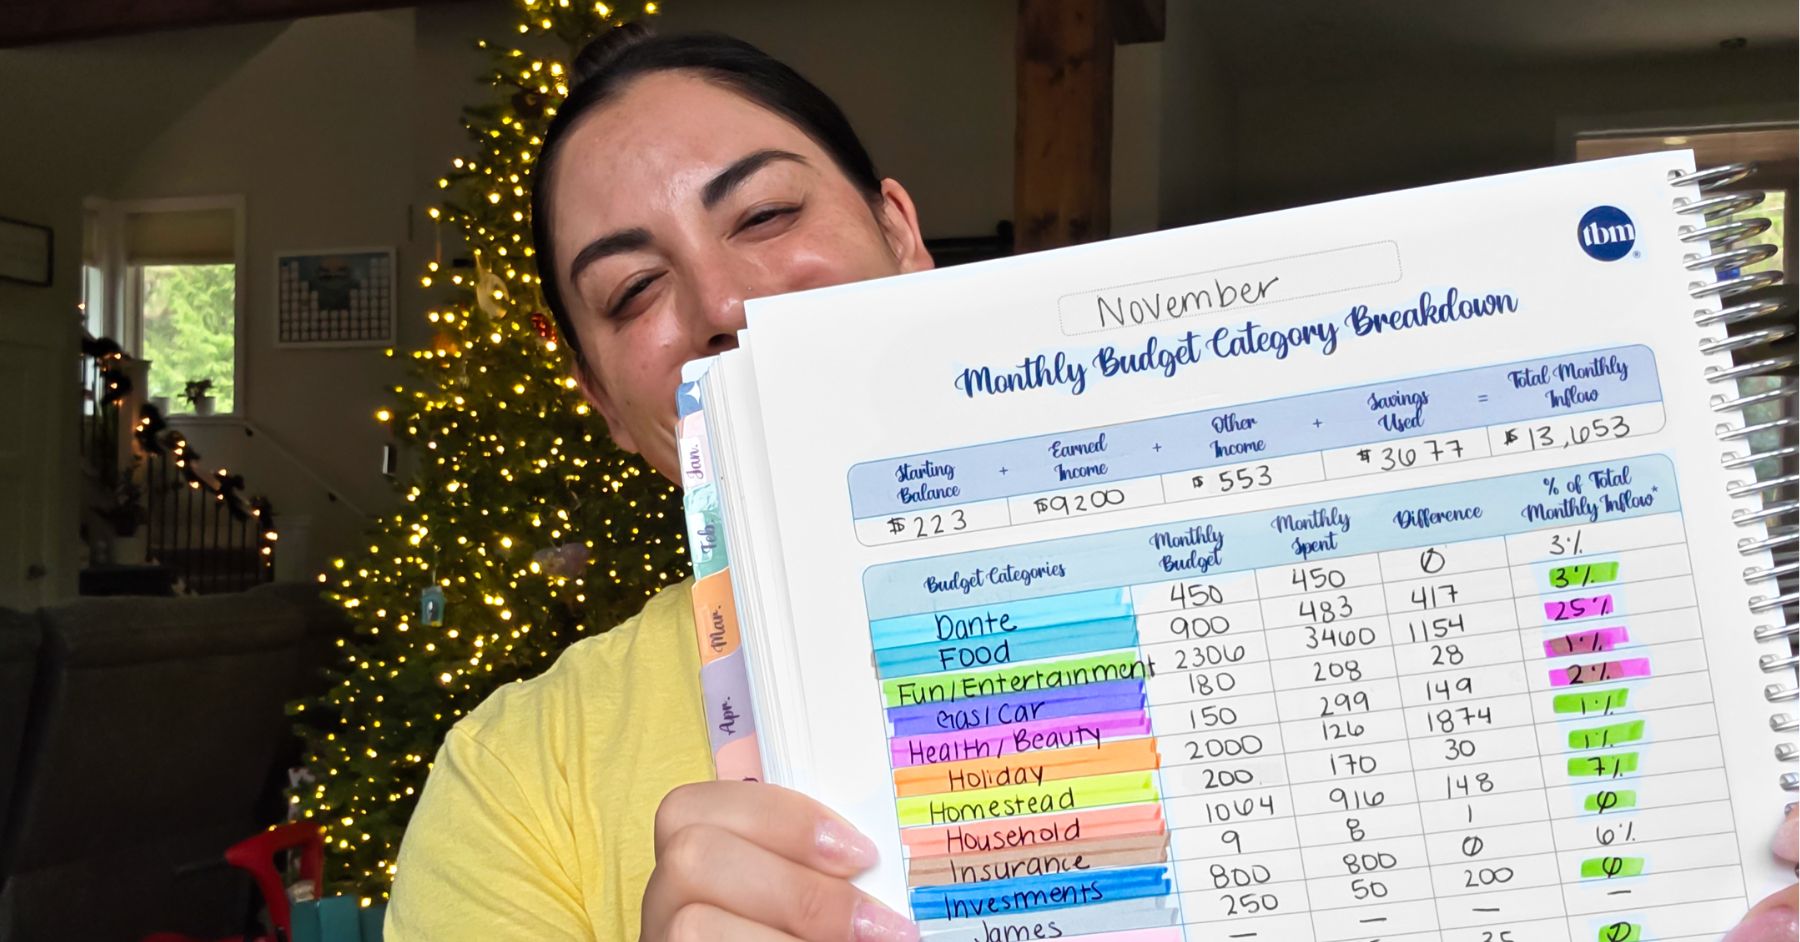 tbm
November
Monthly Budget Category Breakdown
Starting Balance + Earned Income + Other Income + Savings Used = Total Monthly Inflow
$223 $9200 $553 $3677 $13,653
Budget Categories Monthly Budget Monthly Spent Difference % of Total Monthly Inflow*
Dante 450 450 0 3%
Food 900 483 417 3%
Fun/Entertainment 2306 3460 1154 25%
Gas/Car 180 208 28 1%
Health/Beauty 150 299 149 2%
Holiday 2000 126 1874 1%
Homestead 200 170 30 1%
Household 1064 916 148 7%
Insurance 9 8 1 0
Investments 800 800 0 6%
James 250 50 200 0
— — — —
Jan.
Feb.
Mar.
Apr.